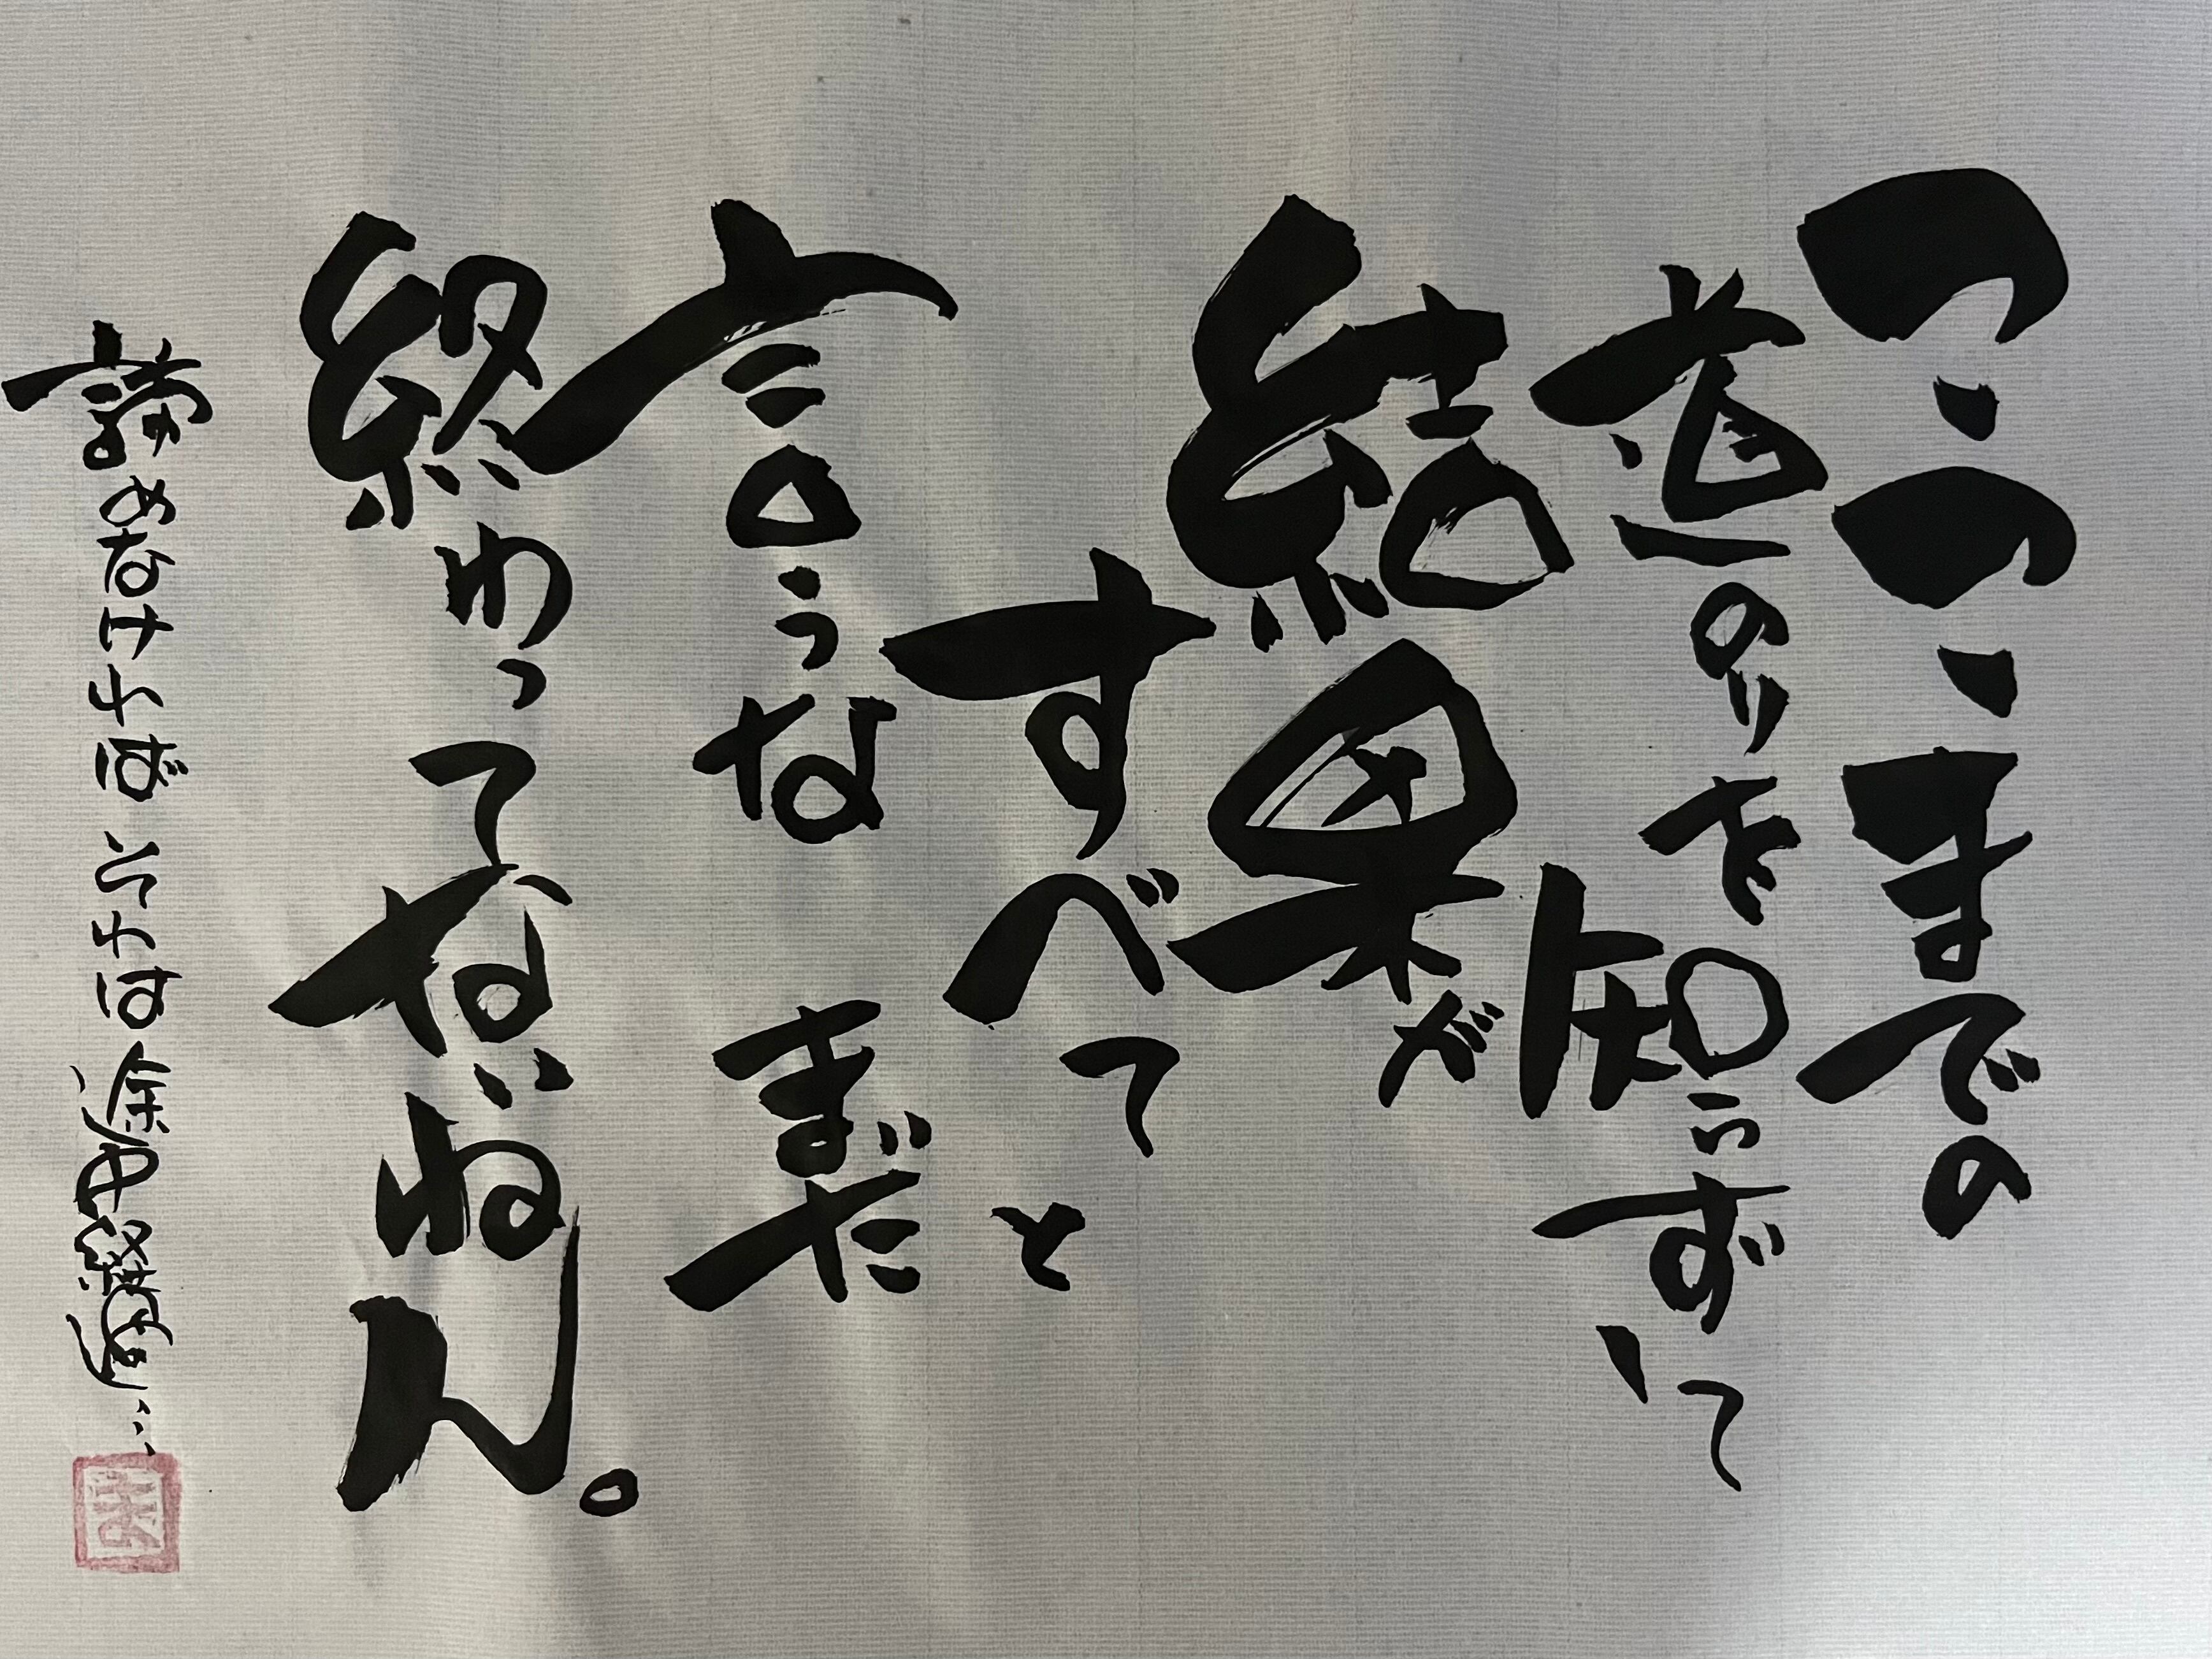 ここまでの
道のりを知らずして
結果が
すべてと
言うな まだ
終わってないねん。
諦めなければ それは途中経過…